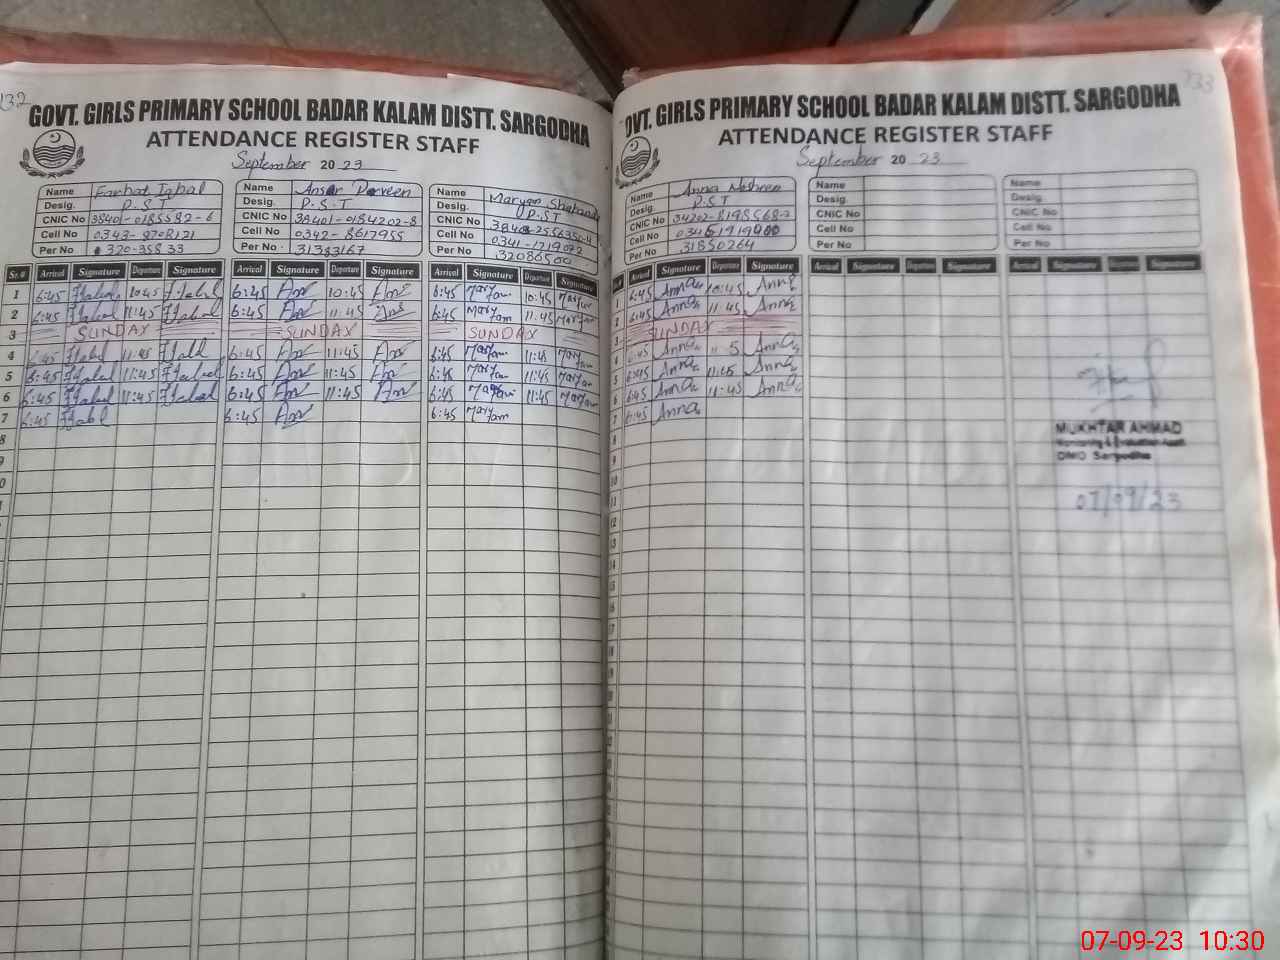 132
GOVT. GIRLS PRIMARY SCHOOL BADAR KALAM DISTT. SARGODHA
ATTENDANCE REGISTER STAFF
September 20 23
Name Farhat Iqbal
Desig. P.S.T
CNIC No 38401-0185582-6
Cell No 0343-8708121
Per No 320-358 33
Name Ansar Parveen
Desig. P.S.T
CNIC No 38401-0184202-8
Cell 0342-8617955
Per No 31383167
Name Maryam
Desig. P.ST
CNIC No
Cell No 0341-1719072
Per No 32086500
Sr.# Arrival Signature Departure Signature Arrival Signature Departure Signature Arrival Signature Departure Signature
1 6:45 Iqbal 10:45 Iqbal 6:45 10:45 6:45 Maryam 10:45 Maryam
2 6:45 Iqbal 11:45 Iqbal 6:45 11:45 6:45 Maryam 11:45 Maryam
3 SUNDAY SUNDAY SUNDAY
4 6:45 Iqbal 11:45 Iqbal 6:45 11:45 6:45 Maryam 11:45 Maryam
5 6:45 Iqbal 11:45 Iqbal 6:45 11:45 6:45 Maryam 11:45 Maryam
6 6:45 Iqbal 11:45 Iqbal 6:45 11:45 6:45 Maryam 11:45 Maryam
7 6:45 Iqbal 6:45 6:45 Maryam
8
9
10
133
OVT. GIRLS PRIMARY SCHOOL BADAR KALAM DISTT. SARGODHA
ATTENDANCE REGISTER STAFF
September 20 23
Name Anna Noshren
Desig. P.S.T
CNIC No 34202-8198568-2
Cell No
Per No 31850264
Name
Desig.
CNIC No
Cell No
Per No
Name
Desig.
CNIC No
Cell No
Per No
Arrival Signature Departure Signature Arrival Signature Departure Signature Arrival Signature Departure Signature
1 6:45 Anna 10:45 Anna
2 6:45 Anna 11:45 Anna
3 SUNDAY
4 6:45 Anna 5 Anna
5 6:45 Anna 11:45 Anna
6 6:45 Anna 11:45 Anna
7 6:45 Anna
8
9
10
11
12
13
14
15
16
17
18
19
MUKHTAR AHMAD
Monitoring & Evaluation Asstt.
DMO Sargodha
07/09/23
07-09-23 10:30